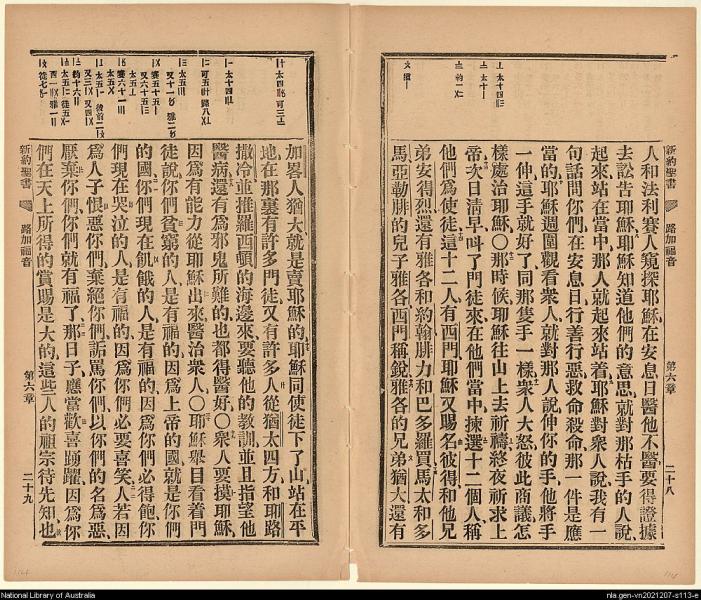 人和法利賽人窺探耶穌在安息日醫他不醫要得證據
去訟告耶穌耶穌知道他們的意思就對那枯手的人說
起來站在當中那人就起來站着耶穌對衆人說我有一
句話問你們在安息日行善行惡救命殺命那一件是應
當的耶穌週圍觀看衆人就對那人說伸你的手他將手
一伸這手就好了同那隻手一樣衆人大怒彼此商議怎
樣處治耶穌〇那時候耶穌往山上去祈禱終夜祈求上
帝次日清早呌了門徒來在他們當中揀選十二個人稱
他們爲使徒這十二人有西門耶穌又賜名彼得和他兄
弟安得烈還有雅各和約翰腓力和巴多羅買馬太和多
馬亞勒腓的兒子雅各西門稱銳雅各的兄弟猶大還有
新約聖書
路加福音
第六章
二十八
加畧人猶大就是賣耶穌的耶穌同使徒下了山站在平
地在那裏有許多門徒又有許多人從猶太四方和耶路
撒冷並推羅西頓的海邊來要聽他的教訓並且指望他
醫病還有爲邪鬼所難的也都得醫好〇衆人要摸耶穌
因爲有能力從耶穌出來醫治衆人〇耶穌舉目看着門
徒說你們貧窮的人是有福的因爲上帝的國就是你們
的國你們現在飢餓的人是有福的因爲你們必得飽你
們現在哭泣的人是有福的因爲你們必要喜笑人若因
爲人子恨惡你們棄絕你們詬罵你們以你們的名爲惡
厭棄你們你們就有福了那日子應當歡喜踴躍因爲你
們在天上所得的賞賜是大的這些人的祖宗待先知也
新約聖書
路加福音
第六章
二十九
National Library of Australia
nla.gen-vn2021207-s113-e